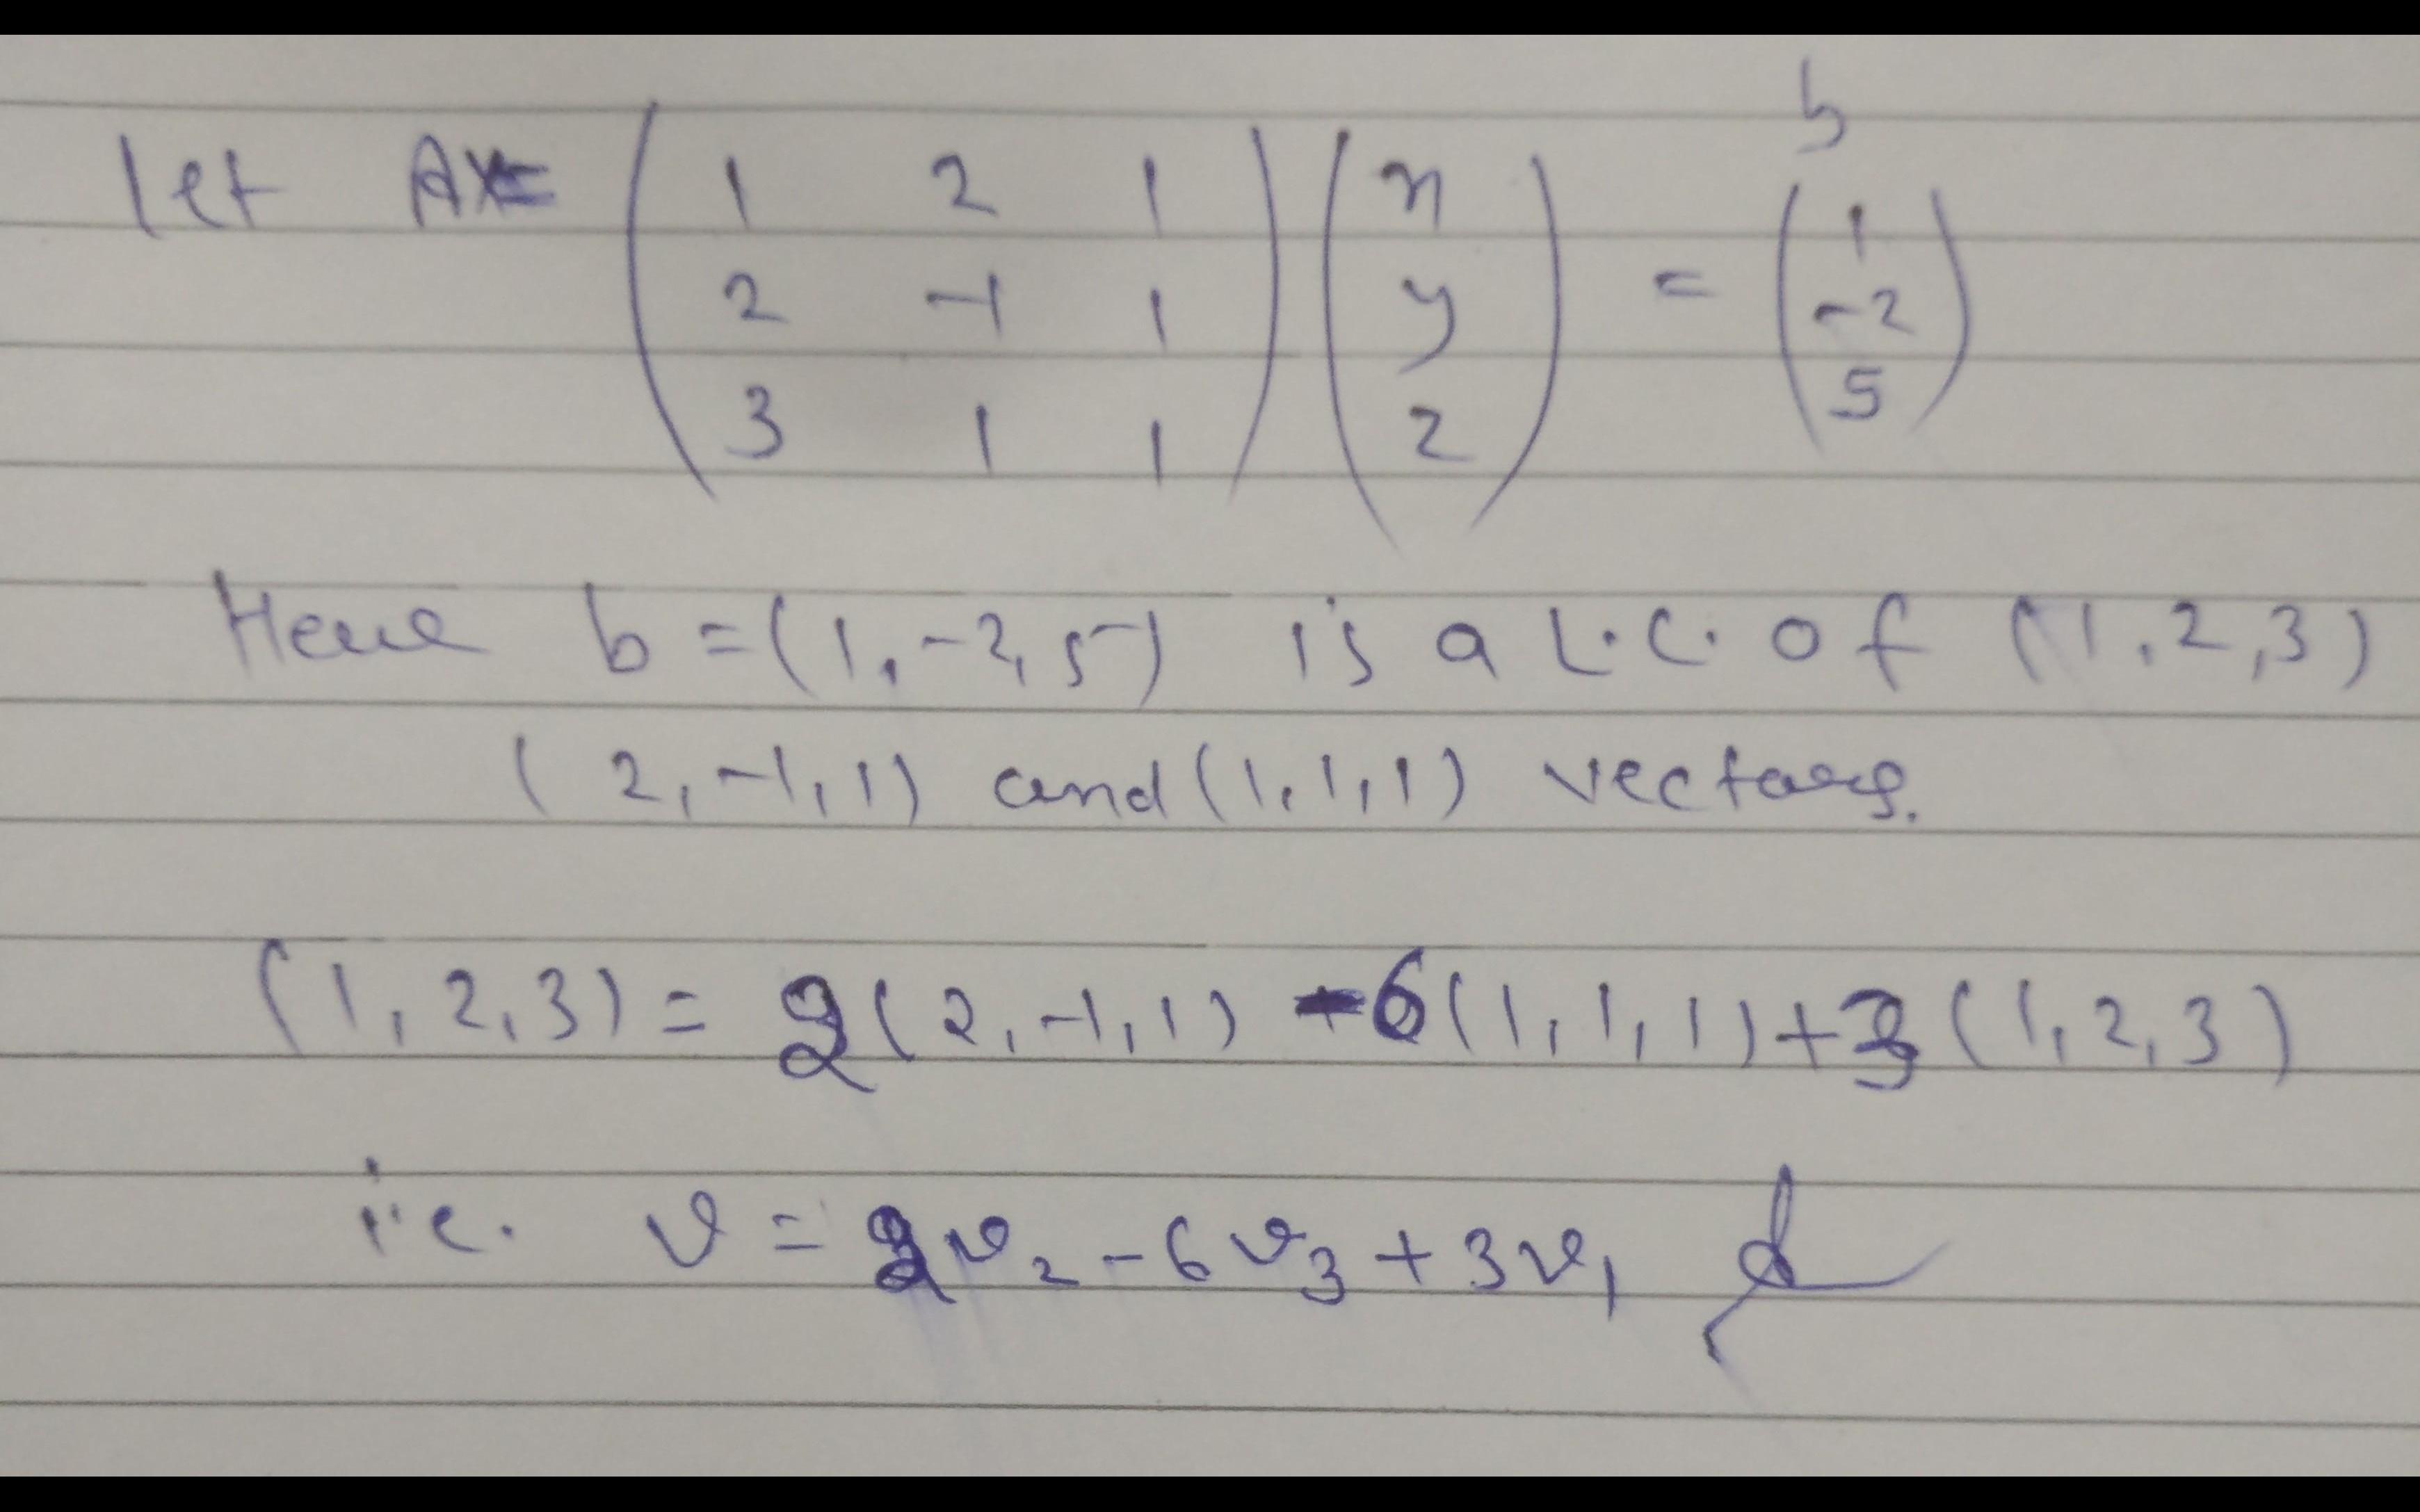 b
let AX = ( 1 2 1 ) ( x ) = ( 1 )
2 -1 1 y -2
3 1 1 z 5
Here b = (1, -2, 5) is a L.C. of (1, 2, 3)
(2, -1, 1) and (1, 1, 1) vectors.
(1, 2, 3) = 2(2, -1, 1) - 6(1, 1, 1) + 3(1, 2, 3)
i.e. v = 2v₂ - 6v₃ + 3v₁